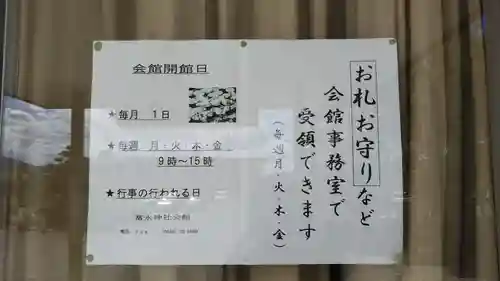 会館開館日
★毎月 1日
★毎週 月・火 木・金
9時～15時
★行事の行われる日
お札お守りなど
会館事務室で
受領できます
(毎週月・火・木・金)